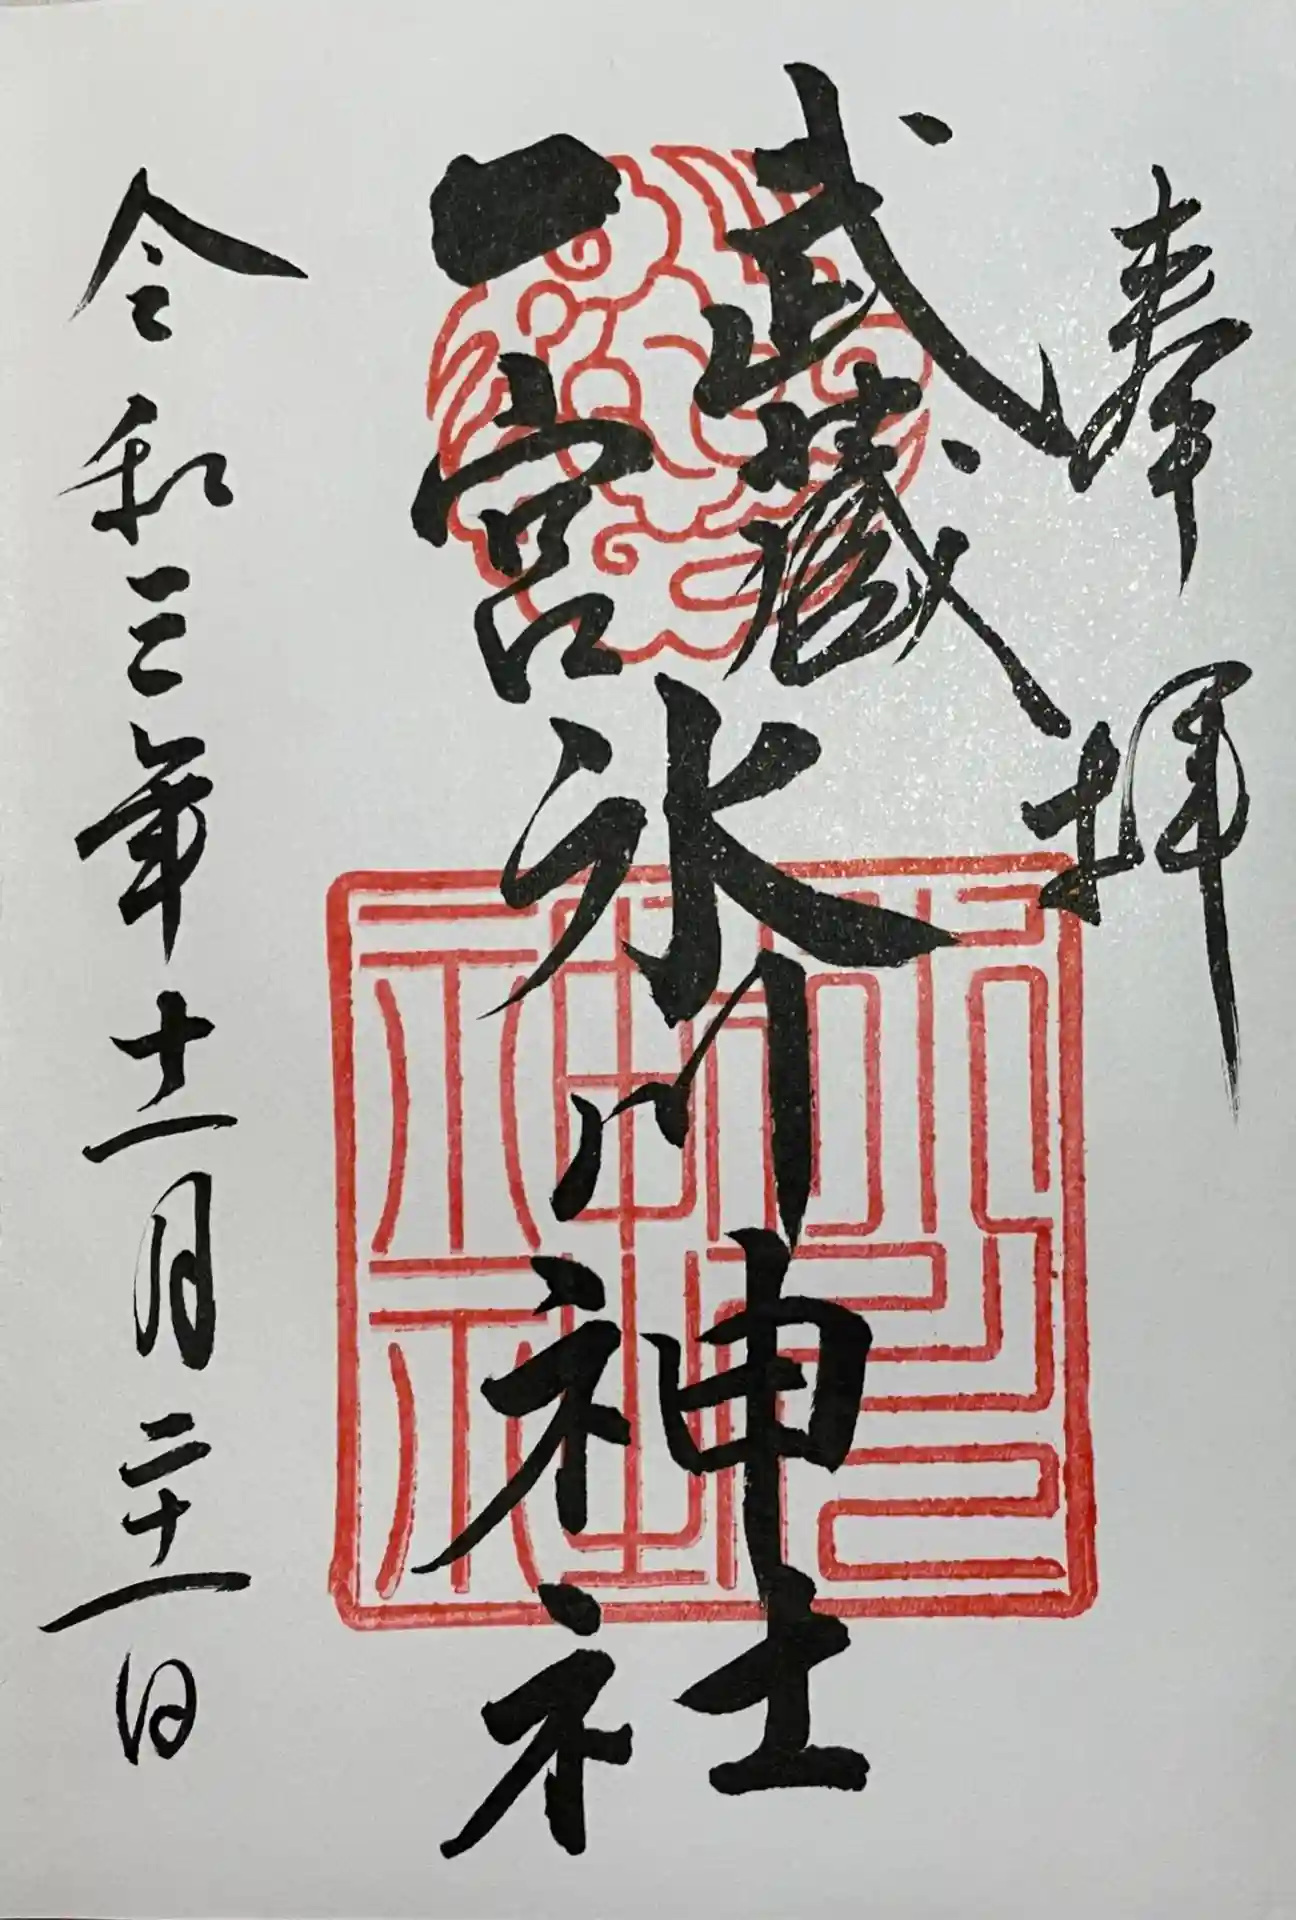 奉拝
武蔵
一宮
氷川神社
令和三年十一月二十一日
氷川神社